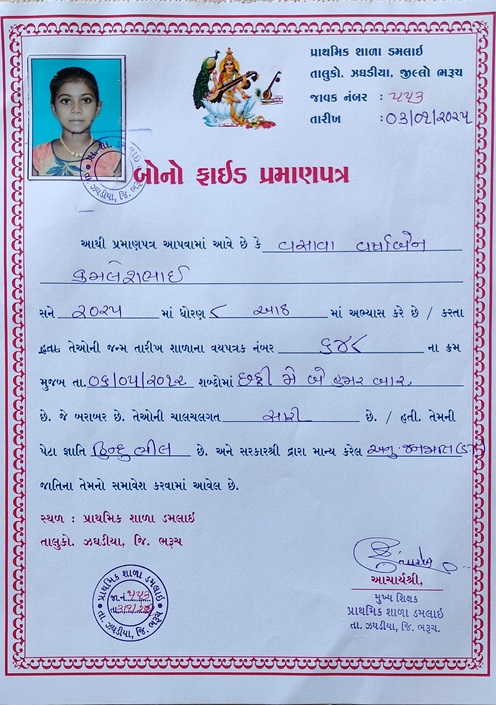 પ્રાથમિક શાળા ડમલાઇ
તાલુકો. ઝઘડીયા, જીલ્લો ભરૂચ
જાવક નંબર : ૫૫૩
તારીખ :
બોનો ફાઈડ પ્રમાણપત્ર
આથી પ્રમાણપત્ર આપવામાં આવે છે કે વસાવા વર્ષાબેન
કમલેશભાઈ
સને ૨૦૨૫ માં ધોરણ ૮ આઠ માં અભ્યાસ કરે છે / કરતા
હતા. તેઓની જન્મ તારીખ શાળાના વયપત્રક નંબર ૬૭૪૮ ના ક્રમ
મુજબ તા. ૦૬/૦૫/૨૦૧૨ શબ્દોમાં છઠ્ઠી મે બે હજાર બાર
છે. જે બરાબર છે. તેઓની ચાલચલગત સારી છે. / હતી. તેમની
પેટા જ્ઞાતિ હિન્દુ ભીલ છે. અને સરકારશ્રી દ્વારા માન્ય કરેલ
જાતિના તેમનો સમાવેશ કરવામાં આવેલ છે.
સ્થળ : પ્રાથમિક શાળા ડમલાઇ
તાલુકો. ઝઘડીયા, જિ. ભરૂચ
પ્રાથમિક શાળા ડમલાઇ
જા.નં. ૫૫૩
તા. ઝઘડીયા, જિ. ભરૂચ.
આચાર્યશ્રી,
મુખ્ય શિક્ષક
પ્રાથમિક શાળા ડમલાઇ
તા. ઝઘડીયા, જિ. ભરૂચ.